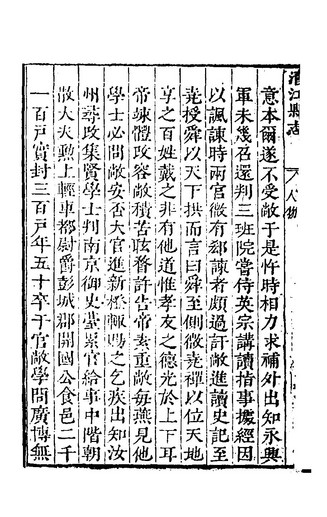 清江縣志
人物
意本爾遂不受敵于是忤時相力求補外出知永興
軍未幾召還判三班院嘗侍英宗講讀指事據經因
以諷諫時兩宮微有郤諫者頗過訐敵進讀史記至
堯授舜以天下拱而言曰舜至側微堯禪以位天地
享之百姓戴之非有他道惟孝友之德光於上下耳
帝竦體改容敵積苦眩瞀許告帝素重敵每燕見他
學士必問敵安否大官進新橙輒賜之乞疾出知汝
州尋改集賢學士判南京御史臺累官給事中階朝
散大夫勲上輕車都尉爵彭城郡開國公食邑二千
一百戸實封三百戸年五十卒于官敵學問廣博無